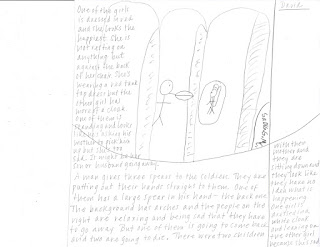 One of the girls
is dressed in red
and she looks the
happiest. She is
not resting on
anything but
against the back
of her chair. She's
wearing a one tank
top dress but the
other girl has
more of a cloak.
One of them is
standing and looks
like he's asking his
mother to pick him
up but she's too
old. It might be her
son or husband going away.
A man gives three spears to the soldiers. They are
putting out their hands straight to them. One of
them has a large spear in his hand - the back one.
The background has arches and the people on the
right are relaxing and being sad that they have
to go away. But one of them is going to come back
and two are going to die. There were two children
David
with their
and
they are
sitting down and
they look like
they have no
idea what is
happening.
One girl's
dress is a
white cloak
and leaning on
the other girl
because she's sad